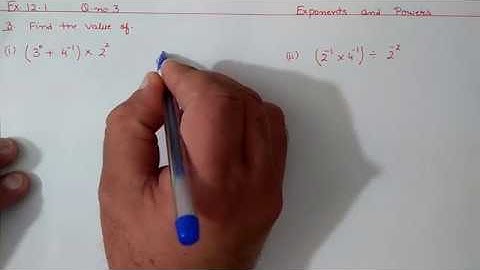 Ex. 12.1 Q. no 3 Exponents and Powers
Q. Find the value of.
(i) (3⁰ + 4⁻¹) × 2²
(ii) (2⁻¹ × 4⁻¹) ÷ 2⁻²